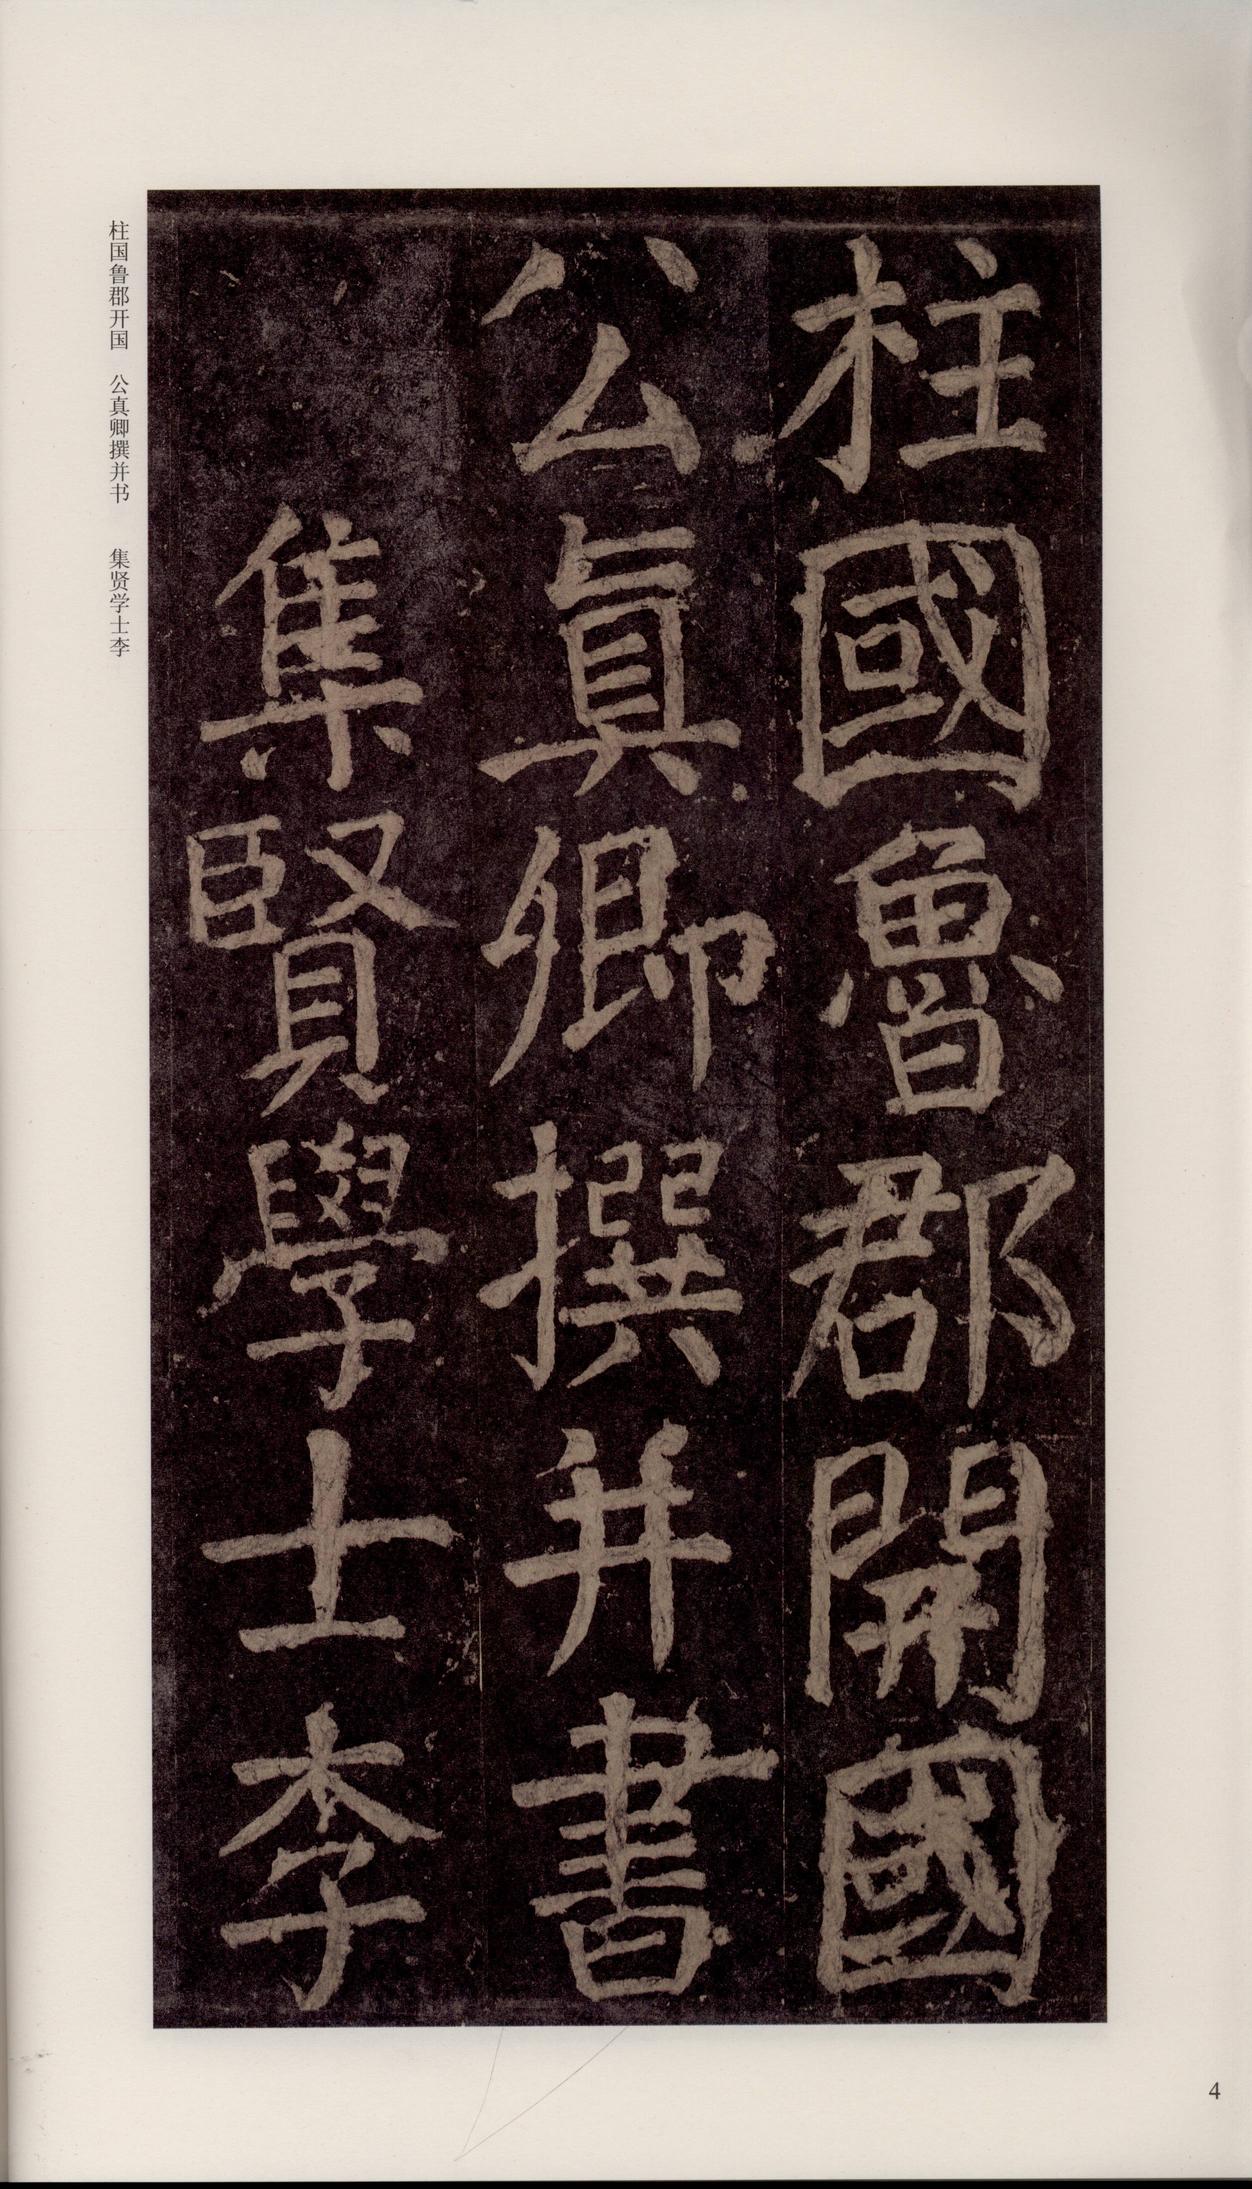 柱國魯郡開國
公真卿撰并書
集賢學士李
柱国鲁郡开国 公真卿撰并书 集贤学士李
4